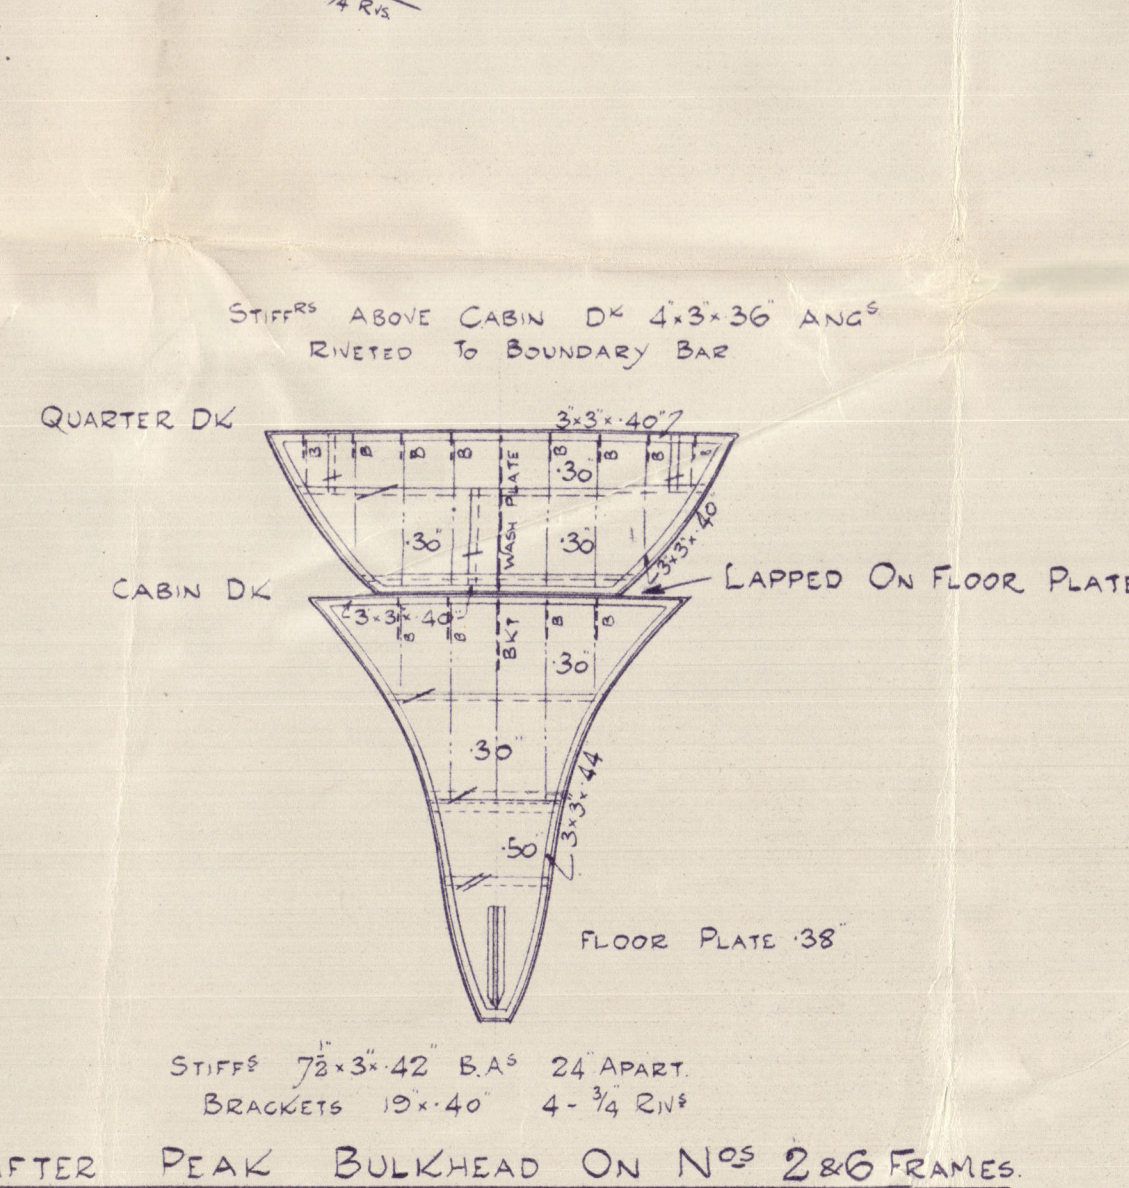 ¾ Rvs.
STIFFRS ABOVE CABIN DK 4"×3"×.36" ANGS
RIVETED TO BOUNDARY BAR
QUARTER DK
3"×3"×.40"
B B B B B B B B
.30"
WASH PLATE
.30" .30"
3"×3"×.40"
CABIN DK
LAPPED ON FLOOR PLATE
3"×3"×.40"
B B BKT B B
.30"
.30"
3"×3"×.44
.50"
FLOOR PLATE .38"
STIFFS 7½"×3"×.42" B.AS 24" APART.
BRACKETS 19"×.40" 4 - ¾" RIVS
AFTER PEAK BULKHEAD ON NOS 2&6 FRAMES.